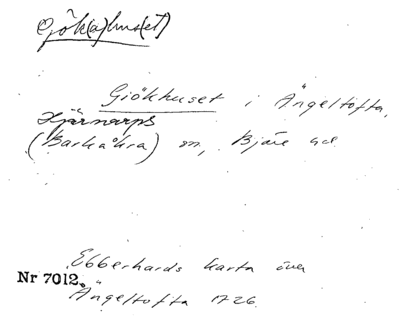 Gök(a)hus(et)
Giökhuset i Ängeltofta,
Hjärnarps
(Barkåkra) sn, Bjäre hd
Ebberhards karta över
Nr 7012.
Ängeltofta 1726.